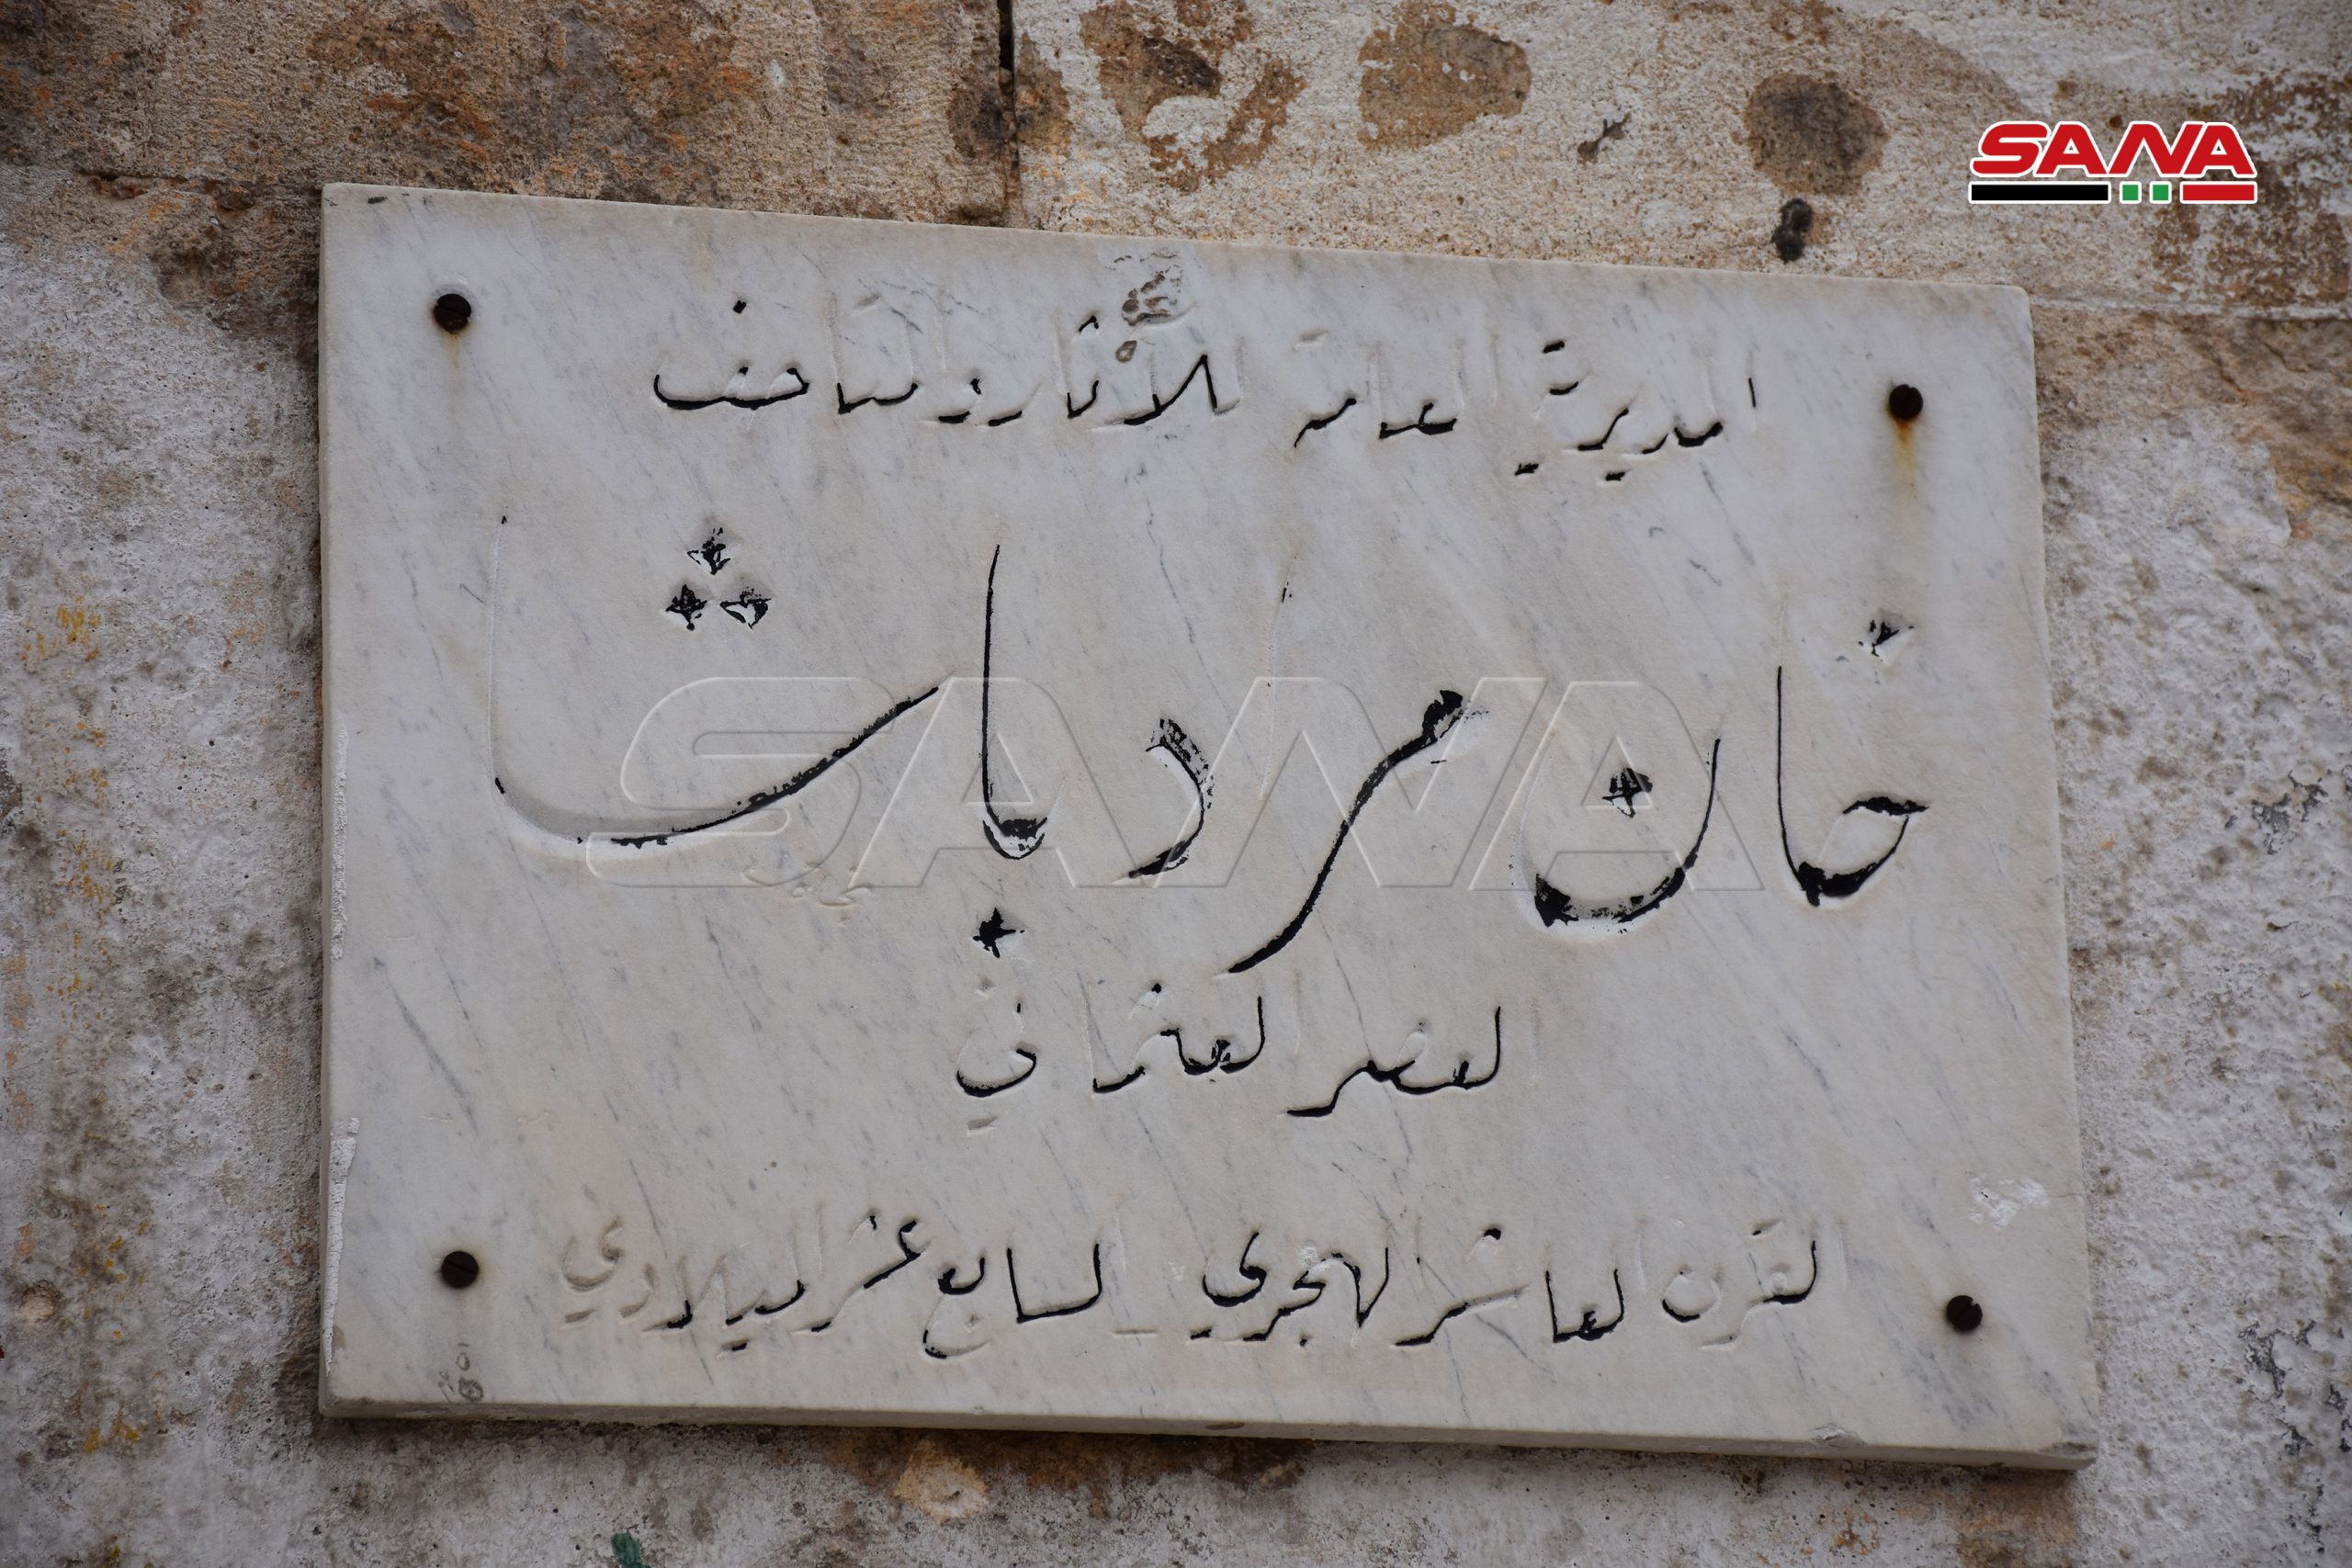 SANA
المديرية العامة للآثار والمتاحف
خان مراد باشا
العصر العثماني
القرن العاشر الهجري - السابع عشر الميلادي
SANA